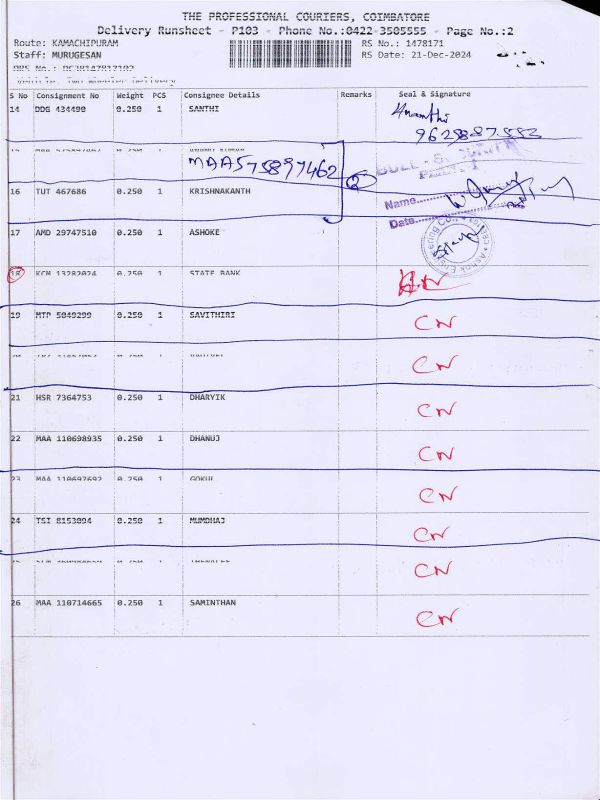 THE PROFESSIONAL COURIERS, COIMBATORE
Delivery Runsheet - P103 - Phone No.:0422-3505555 - Page No.:2
Route: KAMACHIPURAM RS No.: 1478171
Staff: MURUGESAN RS Date: 21-Dec-2024
S No Consignment No Weight PCS Consignee Details Remarks Seal & Signature
14 DDG 434490 0.250 1 SANTHI
MAA575897462
16 TUT 467686 0.250 1 KRISHNAKANTH
Name
Date
17 AMD 29747510 0.250 1 ASHOKE
18 KCM 13282024 0.250 1 STATE BANK
19 MTP 5049299 0.250 1 SAVITHIRI CN
CN
21 HSR 7364753 0.250 1 DHARYIK CN
22 MAA 110698935 0.250 1 DHANUJ CN
23 MAA 110697692 0.250 1 GOKUL CN
24 TSI 8153094 0.250 1 MUMDHAJ CN
CN
26 MAA 110714665 0.250 1 SAMINTHAN CN